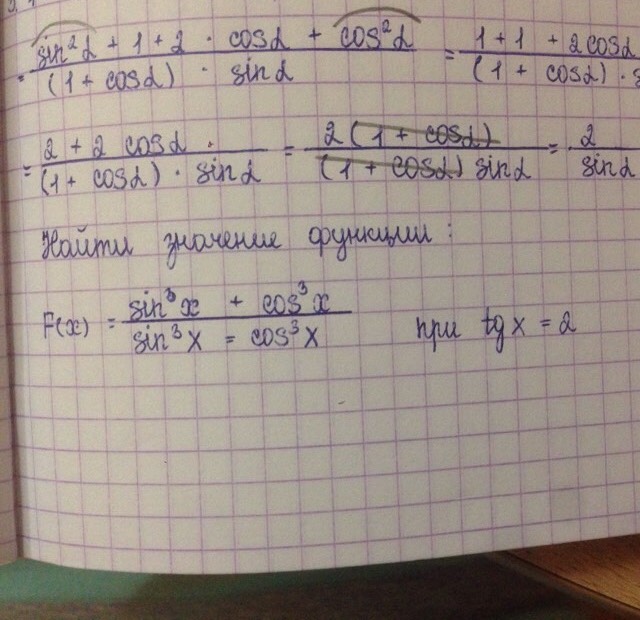 = (sin²α + 1 + 2 · cosα + cos²α) / ((1 + cosα) · sinα) = (1 + 1 + 2cosα) / ((1 + cosα) ·
= (2 + 2 cosα ·) / ((1 + cosα) · sinα) = 2(1 + cosα) / ((1 + cosα) sinα) = 2 / sinα
Найти значение функции :
F(x) = (sin³x + cos³x) / (sin³x = cos³x) при tg x = 2